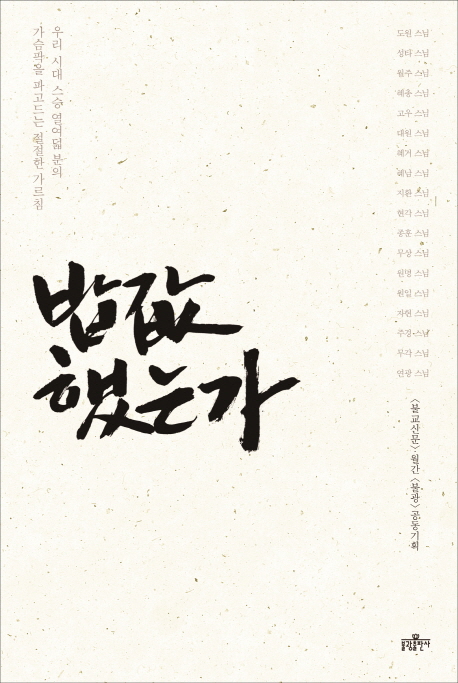 우리 시대 스승 열여덟 분의
가슴팍을 파고드는 절절한 가르침
밥값
했는가
도원 스님
성타 스님
월주 스님
혜총 스님
고우 스님
대원 스님
혜거 스님
혜남 스님
지환 스님
현각 스님
종훈 스님
무상 스님
원명 스님
원일 스님
자현 스님
주경 스님
무각 스님
연광 스님
〈불교신문〉·월간〈불광〉공동기획
불광출판사